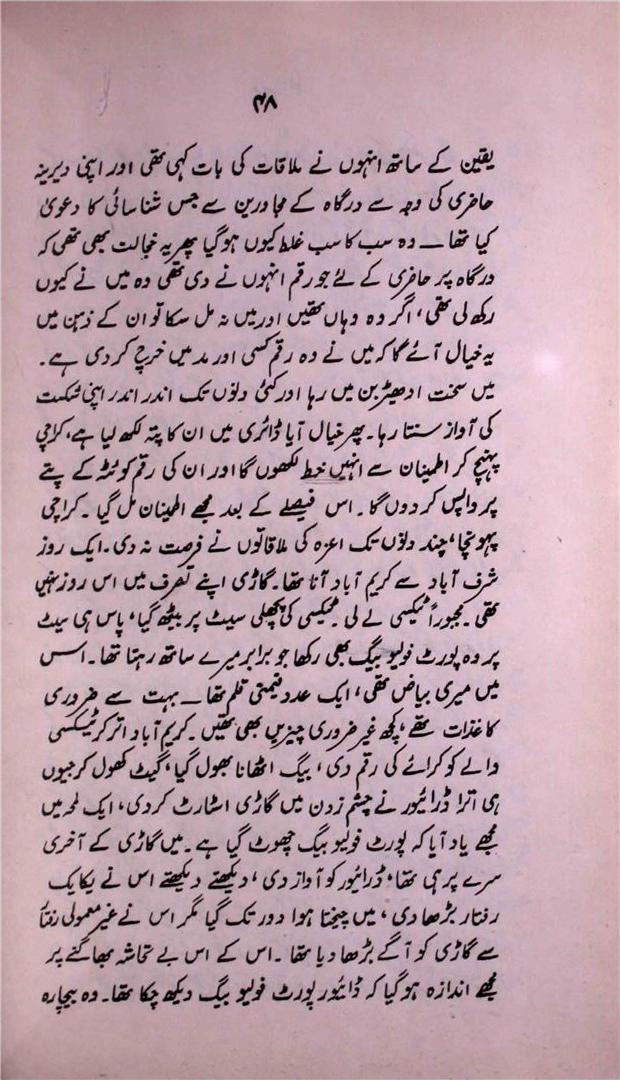 ۴۸
یقین کے ساتھ انہوں نے ملاقات کی بات کہی تھی اور اپنی دیرینہ
حاضری کی وجہ سے درگاہ کے مجاورین سے جس شناسائی کا دعویٰ
کیا تھا ــ وہ سب کا سب غلط کیوں ہوگیا پھر یہ خجالت بھی تھی کہ
درگاہ پر حاضری کے لئے جو رقم انہوں نے دی تھی وہ میں نے کیوں
رکھ لی تھی، اگر وہ وہاں تھیں اور میں نہ مل سکا تو ان کے ذہن میں
یہ خیال آئے گا کہ میں نے وہ رقم کسی اور مد میں خرچ کر دی ہے۔
میں سخت ادھیڑ بن میں رہا اور کئی دلوں تک اندر اندر اپنی شکست
کی آواز سنتا رہا۔ پھر خیال آیا ڈائری میں ان کا پتہ لکھ لیا ہے، کراچی
پہنچ کر اطمینان سے انہیں خط لکھوں گا اور ان کی رقم کوئٹہ کے پتے
پر واپس کر دوں گا۔ اس فیصلے کے بعد مجھے اطمینان مل گیا۔ کراچی
پہونچا، چند دلوں تک اعزہ کی ملاقاتوں نے فرصت نہ دی۔ ایک روز
شرف آباد سے کریم آباد آنا تھا۔ گاڑی اپنے تصرف میں اس روز نہیں
تھی۔ مجبوراً ٹیکسی لے لی۔ ٹیکسی کی پچھلی سیٹ پر بیٹھ گیا، پاس ہی سیٹ
پر وہ پورٹ فولیو بیگ بھی رکھا جو برابر میرے ساتھ رہتا تھا۔ اس
میں میری بیاض تھی، ایک عدد قیمتی قلم تھا ــ بہت سے ضروری
کاغذات تھے، کچھ غیر ضروری چیزیں بھی تھیں۔ کریم آباد اتر کر ٹیکسی
والے کو کرائے کی رقم دی، بیگ اٹھانا بھول گیا، گیٹ کھول کر جیوں
ہی اترا ڈرائیور نے چشم زدن میں گاڑی اسٹارٹ کر دی، ایک لمحہ میں
مجھے یاد آیا کہ پورٹ فولیو بیگ چھوٹ گیا ہے۔ میں گاڑی کے آخری
سرے پر ہی تھا، ڈرائیور کو آواز دی، دیکھتے دیکھتے اس نے یکایک
رفتار بڑھا دی، میں چیختا ہوا دور تک گیا مگر اس نے غیر معمولی رفتار
سے گاڑی کو آگے بڑھا دیا تھا۔ اس کے اس بے تحاشہ بھاگنے پر
مجھے اندازہ ہوگیا کہ ڈائیور پورٹ فولیو بیگ دیکھ چکا تھا۔ وہ بیچارہ